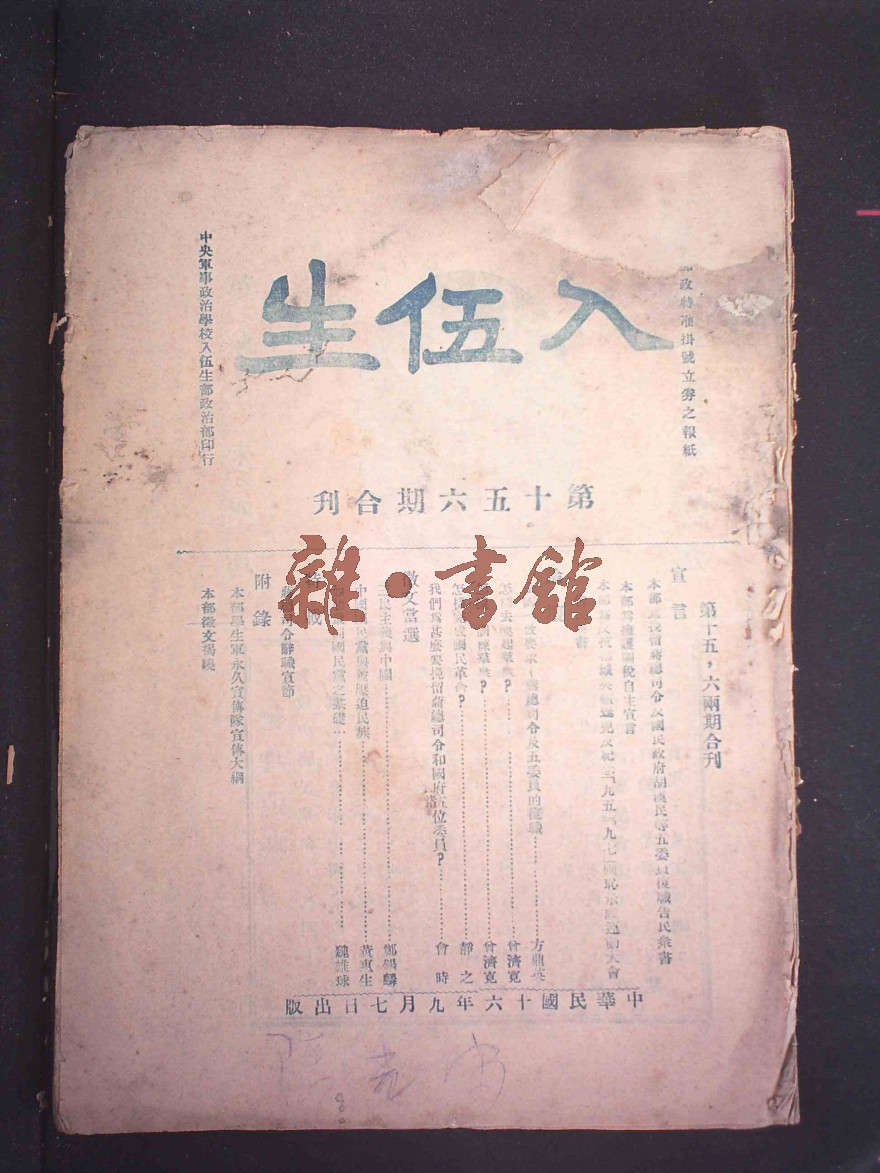 入伍生
政特准掛號立券之報紙
中央軍事政治學校入伍生部政治部印行
第十五六期合刊
第十五，六兩期合刊
宣言
本部為挽留蔣總司令及國民政府胡漢民等五委員復職告民衆書
本部為擁護關稅自主宣言
九五九七國恥示威運動大會
書
總司令及五委員的復職 方鼎英
怎 去喚起羣衆？ 曾濟寬
訓練羣衆？ 曾濟寬
怎 成國民革命？ 靜之
我們為甚麼要挽留蔣總司令和國府五位委員？ 會時
徵文當選
三民主義與中國 鄭錫麟
中國國民黨與被壓迫民族 黃惠生
國民黨之基礎 魏雄球
載
司令辭職宣言
附錄
本部學生軍永久宣傳隊宣傳大綱
本部徵文揭曉
中華民國十六年九月七日出版
雜·書館